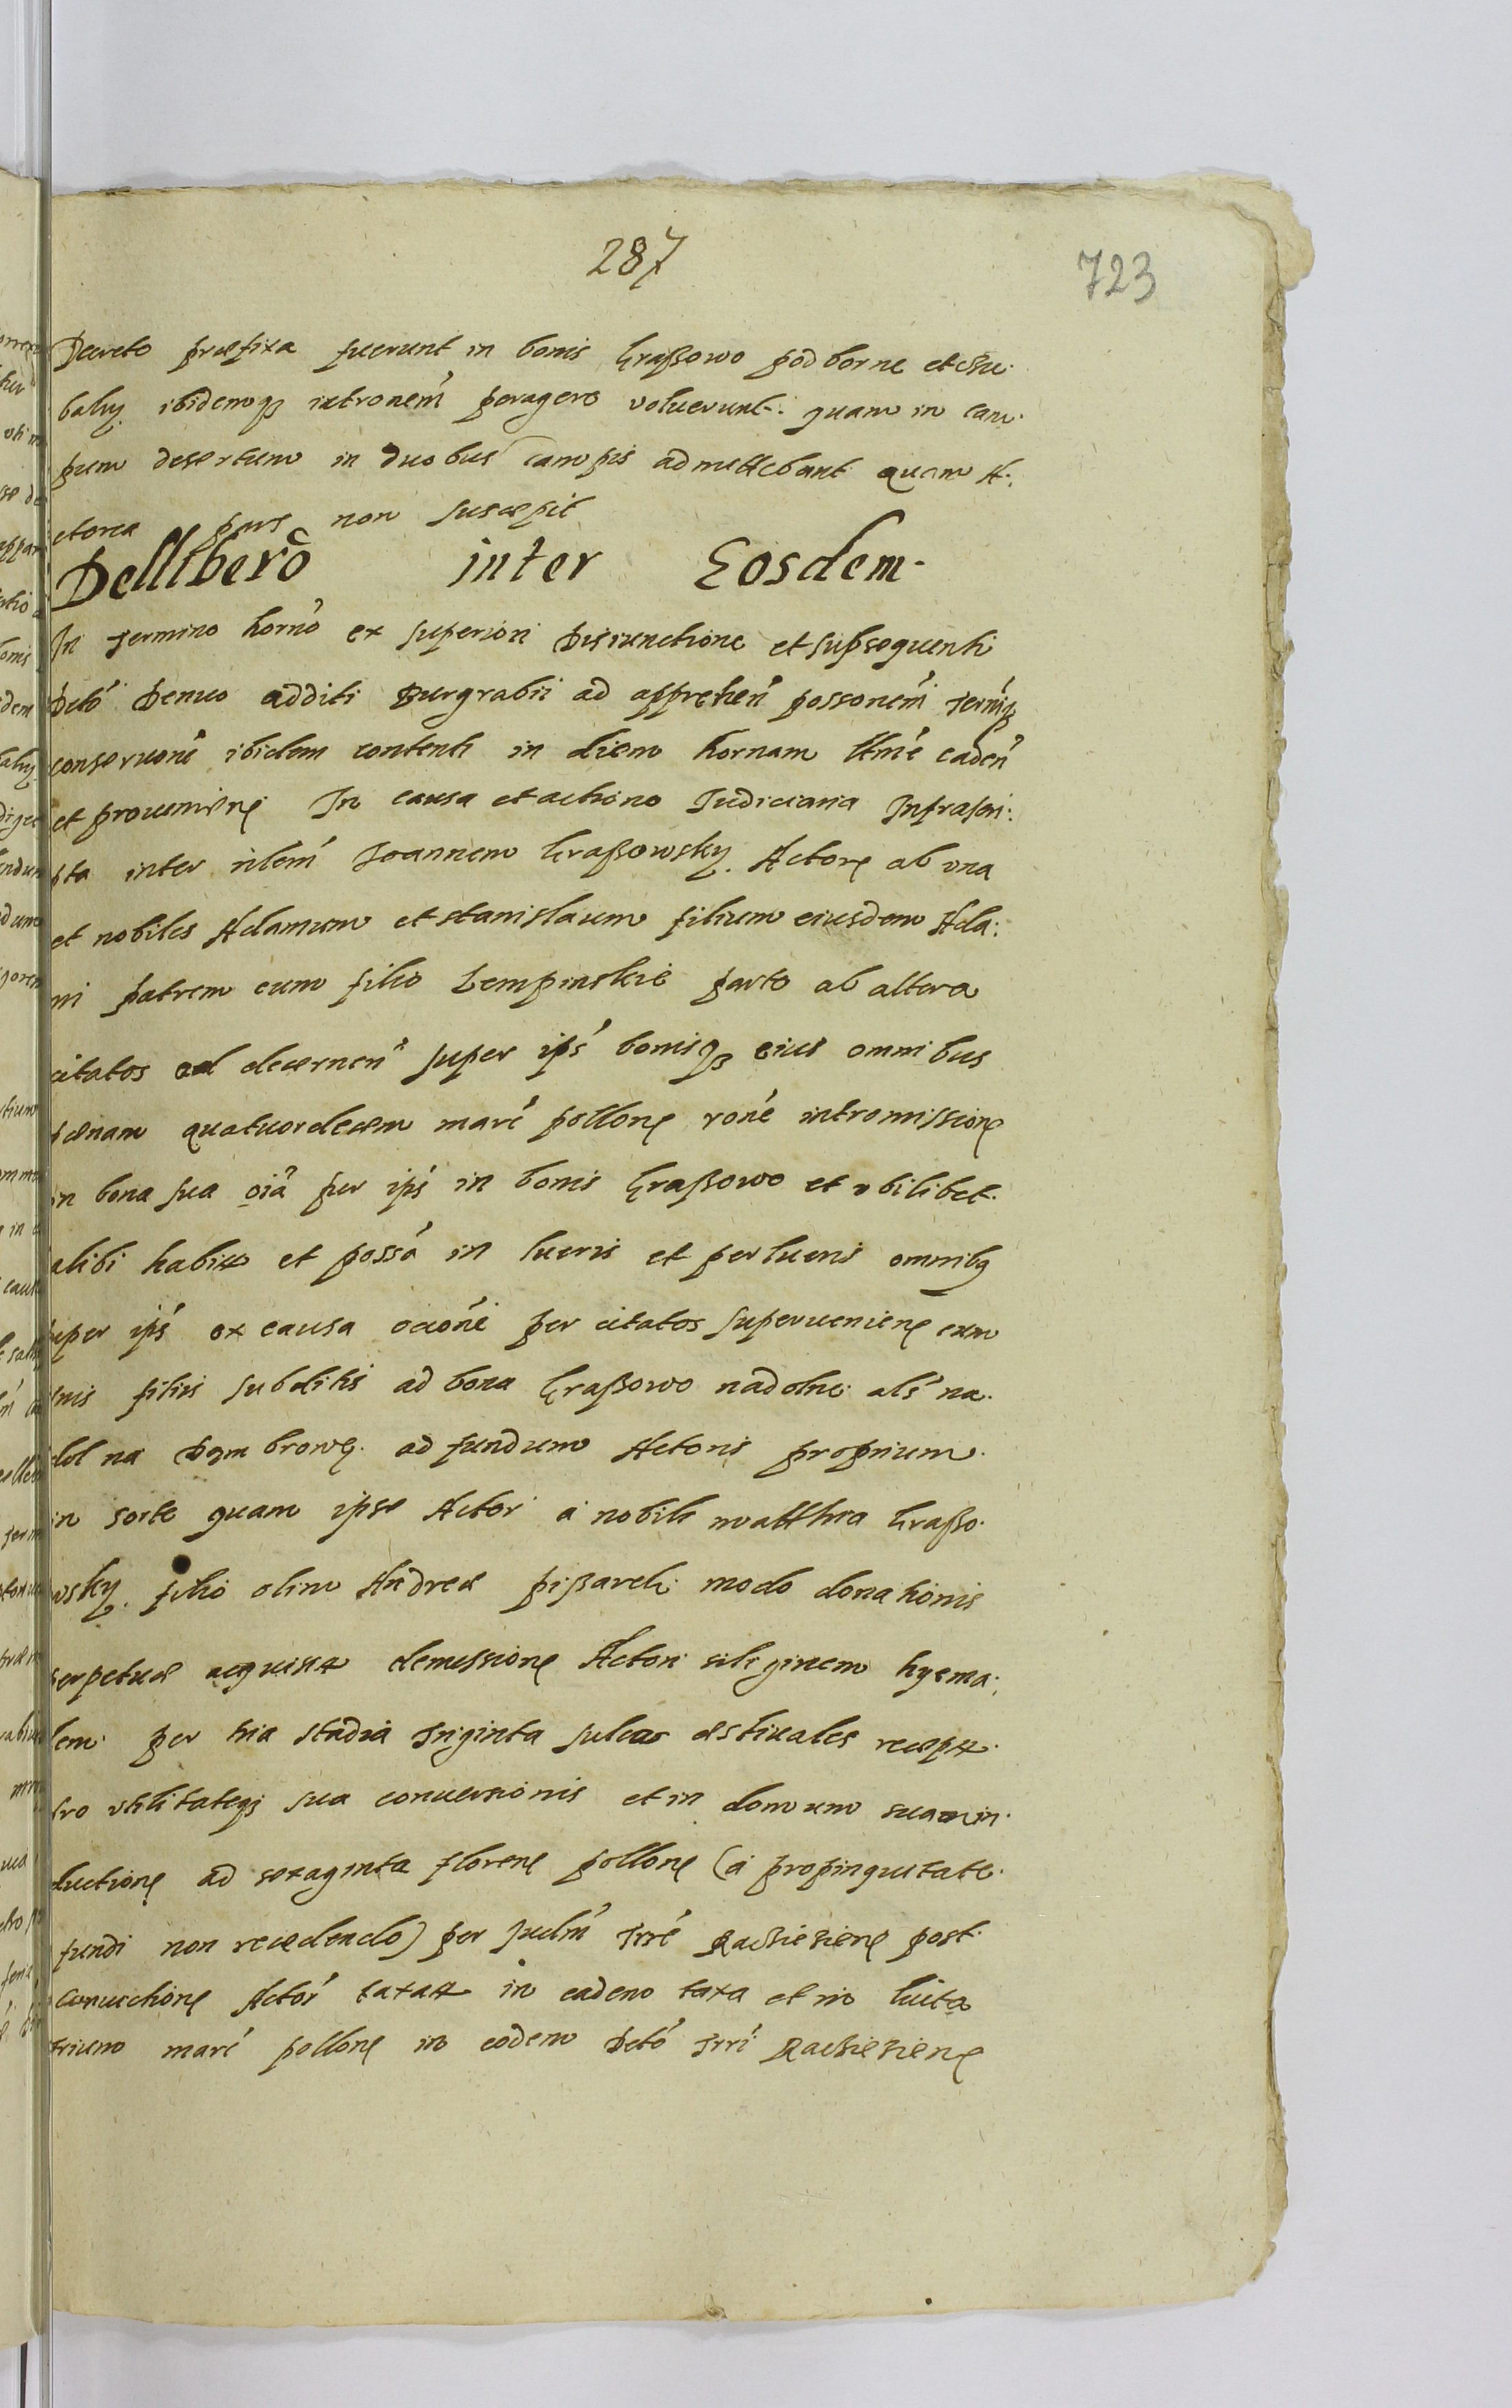 287
723
Decreto præfixa fuerunt in bonis Graßowo podborne et
baluy ibidemqȝ iutronem̃ peragere voluerunt quam in cam-
pum desertum in duobus campis admittebant quam A-
ctorea pars non suscepit
Delliberõ inter Eosdem
In termino hornõ ex superiori Disiunctione et subsequenti
Dctõ Denuo additi Burgrabii ad apprehen̄ possonem̃
ibidem contenti in diem hornam caden̄
et In causa et actione Iudiciaria Infrascri:
pta inter Joannem Graßowsky Actorē ab vna
et nobiles Adamum et Stanislaum filium eiusdem Ada:
mi patrem cum filio Lempinskie parte ab altera
citatos ad decernen̄ super ips̃ bonisqȝ eius omnibus
pænam quatuordecem marc̃ pollonē rone̊ intromissionē
in bona sua oiå per ips̃ in bonis Graßowo et vbilibet
alibi habit et posså in lucris et perlucris omnibȝ
super ips̃ ex causa per citatos superuenienē cum
filiis subditis ad bona Graßowo nadolne als̃ na
dol na Dąmbrowę ad fundum Actoris proprium
in sorte quam ipse Actor a nobili Matthia Graßo-
wsky filio olim Andreæ pißarek modo donationis
perpetuæ acquisit demessionē Actori siliginem hyema-
lem per tria stadia Triginta sulcos æstiuales recept
pro vtilitateqȝ sua conuersionis et in domum suam in-
ductionē ad sexaginta florenē pollonē (a propinquitate
fundi non recedendo) per Radzieiienē post
conuictionē Actor̃ taxat in eadem taxa et in luita
trium marc̃ pollonē in eodem Dctõ Radzieiienē